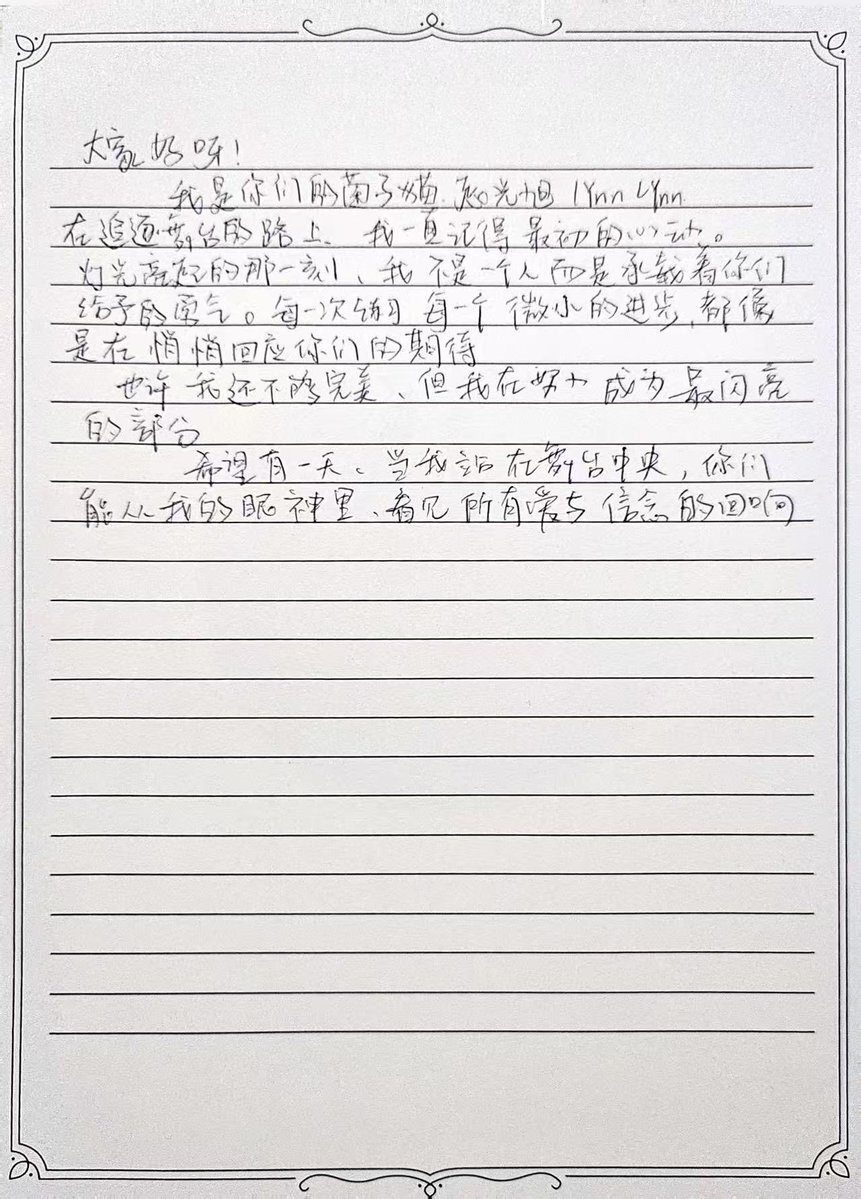 大家好呀!
我是你们的菌子猫 光旭 lynn lynn
在追逐舞台的路上、我一直记得最初的心动。
灯光亮起的那一刻、我不是一个人而是承载着你们
给予的勇气。每一次练习 每一个微小的进步,都像
是在悄悄回应你们的期待
也许我还不够完美、但我在努力成为最闪亮
的部分
希望有一天、当我站在舞台中央,你们
能从我的眼神里、看见所有爱与信念的回响